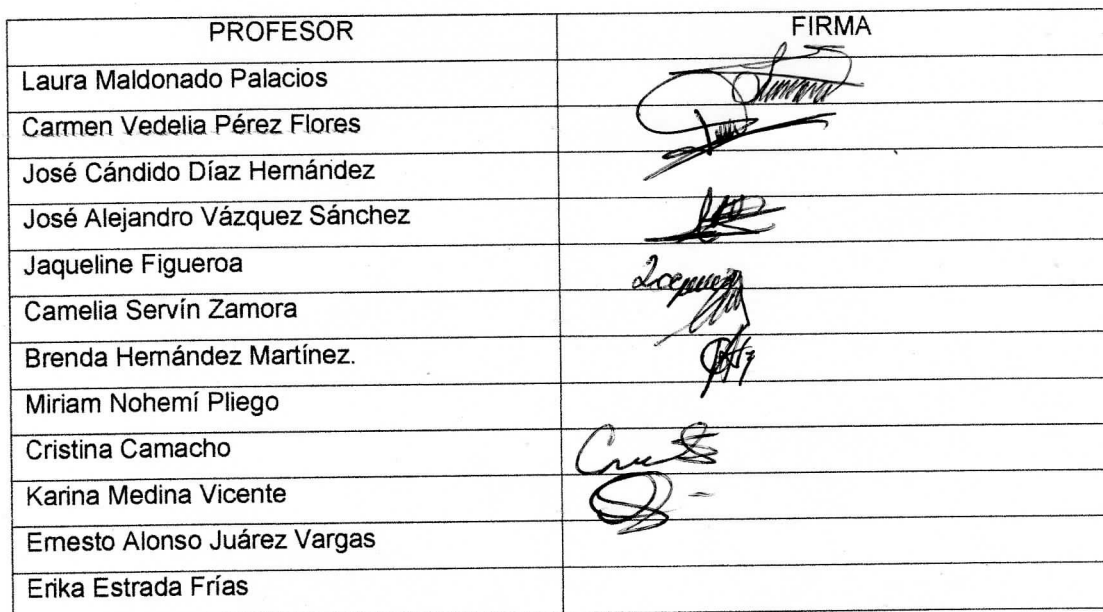 PROFESOR FIRMA
Laura Maldonado Palacios
Carmen Vedelia Pérez Flores
José Cándido Díaz Hernández
José Alejandro Vázquez Sánchez
Jaqueline Figueroa
Camelia Servín Zamora
Brenda Hernández Martínez.
Miriam Nohemí Pliego
Cristina Camacho
Karina Medina Vicente
Ernesto Alonso Juárez Vargas
Erika Estrada Frías